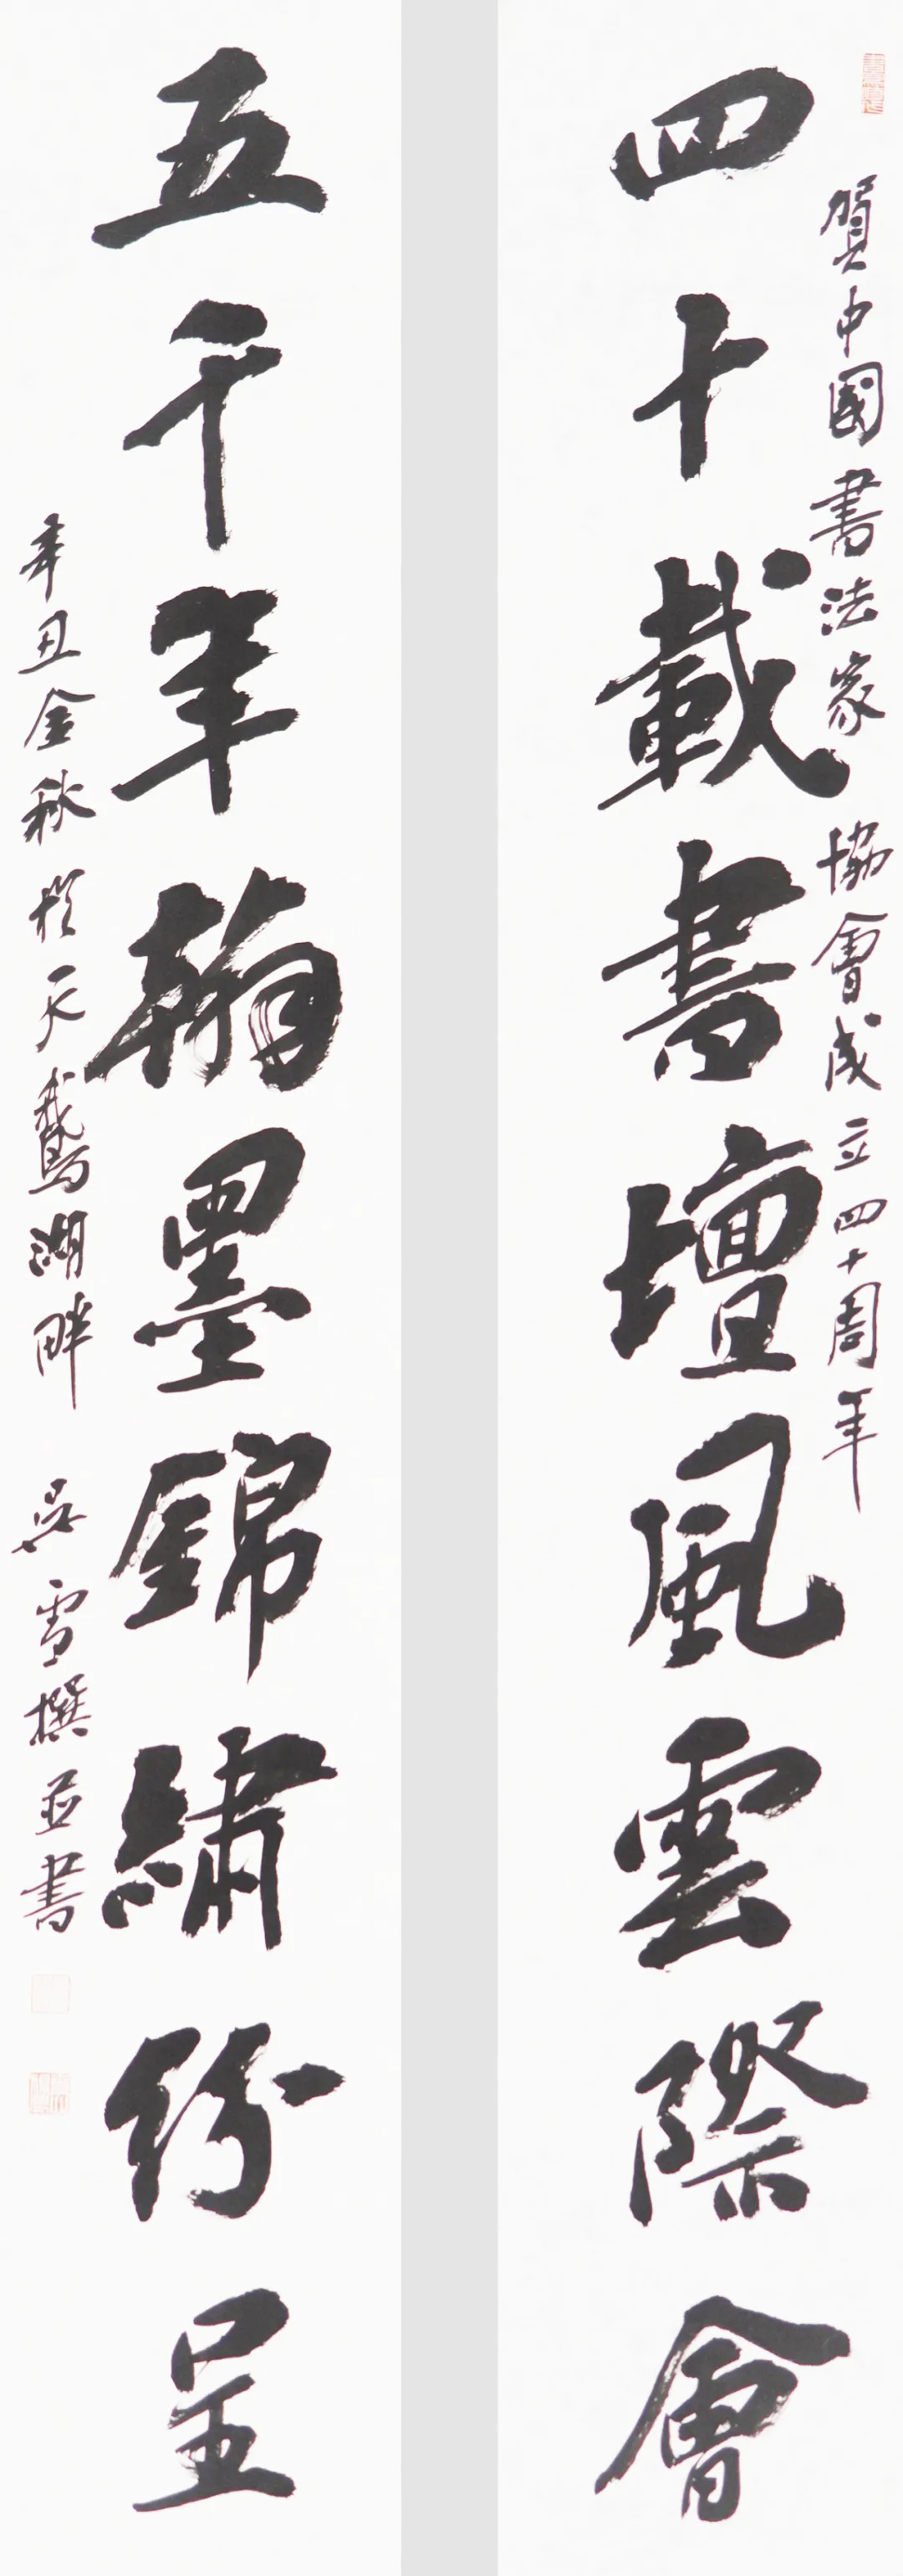 賀中國書法家協會成立四十周年
四十載書壇風雲際會
五千年翰墨錦繡紛呈
辛丑金秋於天鵞湖畔 吳雪撰並書